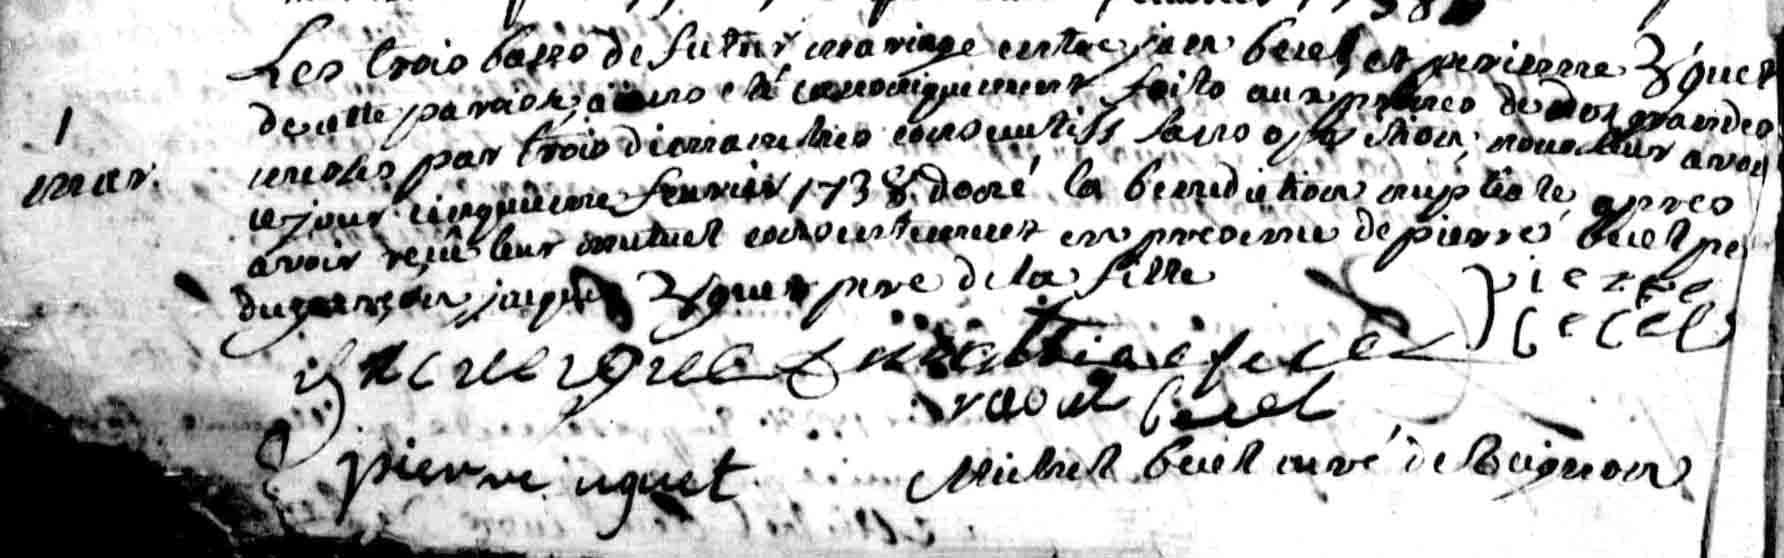 1
mar.
Les trois bans de futur mariage entre jan becel et perienne Uguet
de cette paroisse, aians eté canoniquement faits aux prônes de nos grandes
messes par trois dimanches consecutifs sans oposition, nous leur avons
ce jour cinquieme fevrier 1738 donné la benediction nuptiale apres
avoir reçu leur mutuel consentement en presence de pierre becel pere
du garçon, jacques Uguet pere de la fille
pierre
becel
jacque uguet mathie becel
raoul becel
pierre uguet Michel becel curé de Beignon